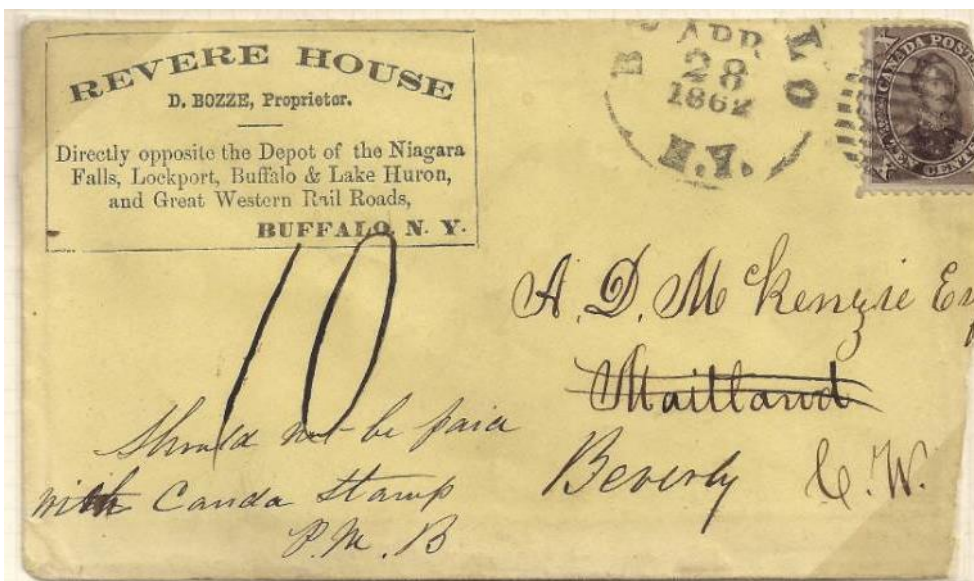 REVERE HOUSE
D. BOZZE, Proprietor.
Directly opposite the Depot of the Niagara
Falls, Lockport, Buffalo & Lake Huron,
and Great Western Rail Roads,
BUFFALO, N. Y.
APR
28
1862
N.Y.
CANADA POST
TEN PENCE
CENTS
10
A. D. McKenzie Esq
Maitland
Beverly C. W.
Should not be paid
with Canda Stamp
P. M. B